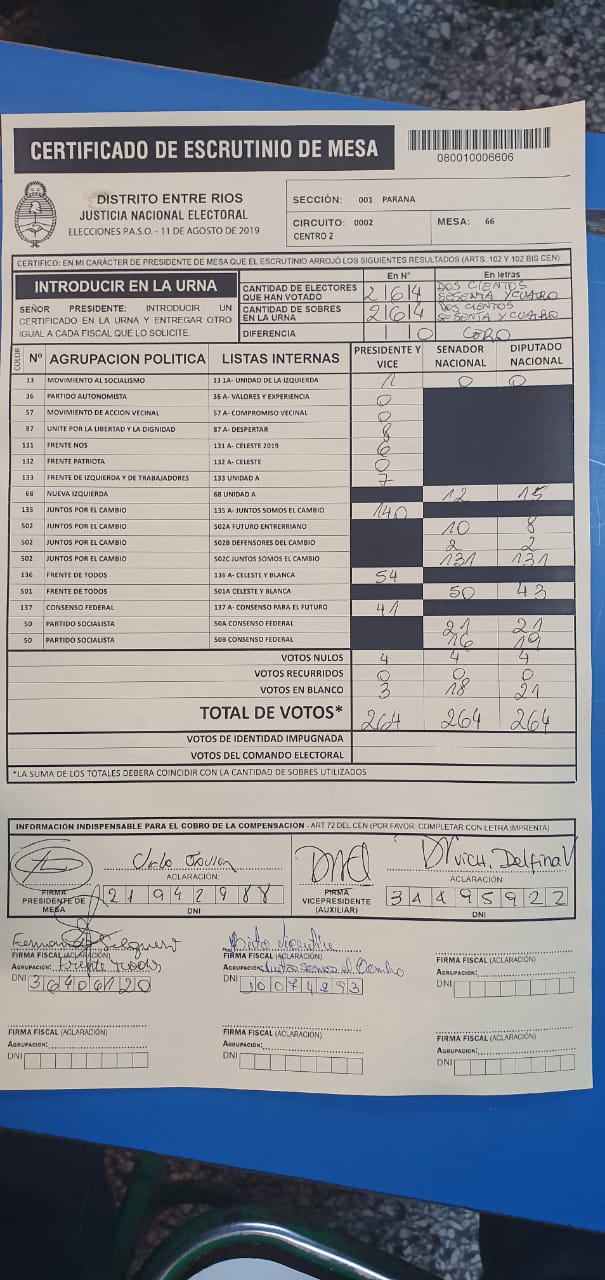 CERTIFICADO DE ESCRUTINIO DE MESA
080010006606
DISTRITO ENTRE RIOS
JUSTICIA NACIONAL ELECTORAL
ELECCIONES P.A.S.O. - 11 DE AGOSTO DE 2019
SECCIÓN: 001 PARANA
CIRCUITO: 0002
CENTRO 2
MESA: 66
CERTIFICO: EN MI CARÁCTER DE PRESIDENTE DE MESA QUE EL ESCRUTINIO ARROJÓ LOS SIGUIENTES RESULTADOS (ARTS. 102 Y 102 BIS CEN)
INTRODUCIR EN LA URNA
SEÑOR PRESIDENTE: INTRODUCIR UN
CERTIFICADO EN LA URNA Y ENTREGAR OTRO
IGUAL A CADA FISCAL QUE LO SOLICITE.
En N° En letras
CANTIDAD DE ELECTORES QUE HAN VOTADO 264 DOS CIENTOS SESENTA Y CUATRO
CANTIDAD DE SOBRES EN LA URNA 264 DOS CIENTOS SESENTA Y CUATRO
DIFERENCIA 0 CERO
COLOR N° AGRUPACION POLITICA LISTAS INTERNAS PRESIDENTE Y VICE SENADOR NACIONAL DIPUTADO NACIONAL
13 MOVIMIENTO AL SOCIALISMO 13 1A- UNIDAD DE LA IZQUIERDA 1 0 0
36 PARTIDO AUTONOMISTA 36 A- VALORES Y EXPERIENCIA 0
57 MOVIMIENTO DE ACCION VECINAL 57 A- COMPROMISO VECINAL 0
87 UNITE POR LA LIBERTAD Y LA DIGNIDAD 87 A- DESPERTAR 8
131 FRENTE NOS 131 A- CELESTE 2019 6
132 FRENTE PATRIOTA 132 A- CELESTE 0
133 FRENTE DE IZQUIERDA Y DE TRABAJADORES 133 UNIDAD A 7
68 NUEVA IZQUIERDA 68 UNIDAD A 12 15
135 JUNTOS POR EL CAMBIO 135 A- JUNTOS SOMOS EL CAMBIO 140
502 JUNTOS POR EL CAMBIO 502A FUTURO ENTRERRIANO 10 8
502 JUNTOS POR EL CAMBIO 502B DEFENSORES DEL CAMBIO 2 2
502 JUNTOS POR EL CAMBIO 502C JUNTOS SOMOS EL CAMBIO 131 131
136 FRENTE DE TODOS 136 A- CELESTE Y BLANCA 54
501 FRENTE DE TODOS 501A CELESTE Y BLANCA 50 43
137 CONSENSO FEDERAL 137 A- CONSENSO PARA EL FUTURO 41
50 PARTIDO SOCIALISTA 50A CONSENSO FEDERAL 21 21
50 PARTIDO SOCIALISTA 50B CONSENSO FEDERAL 16 19
VOTOS NULOS 4 4 4
VOTOS RECURRIDOS 0 0 0
VOTOS EN BLANCO 3 18 21
TOTAL DE VOTOS* 264 264 264
VOTOS DE IDENTIDAD IMPUGNADA
VOTOS DEL COMANDO ELECTORAL
*LA SUMA DE LOS TOTALES DEBERA COINCIDIR CON LA CANTIDAD DE SOBRES UTILIZADOS
INFORMACIÓN INDISPENSABLE PARA EL COBRO DE LA COMPENSACIÓN - ART 72 DEL CEN (POR FAVOR: COMPLETAR CON LETRA IMPRENTA)
ACLARACIÓN:
FIRMA PRESIDENTE DE MESA
DNI
Delfina V
ACLARACIÓN
FIRMA VICEPRESIDENTE (AUXILIAR)
DNI
FIRMA FISCAL (ACLARACIÓN)
AGRUPACION: Frente Todos
DNI 36406120
FIRMA FISCAL (ACLARACIÓN)
AGRUPACION: Juntos Somos el Cambio
DNI
FIRMA FISCAL (ACLARACIÓN)
AGRUPACION:
DNI
FIRMA FISCAL (ACLARACIÓN)
AGRUPACION:
DNI
FIRMA FISCAL (ACLARACIÓN)
AGRUPACION:
DNI
FIRMA FISCAL (ACLARACIÓN)
AGRUPACION:
DNI